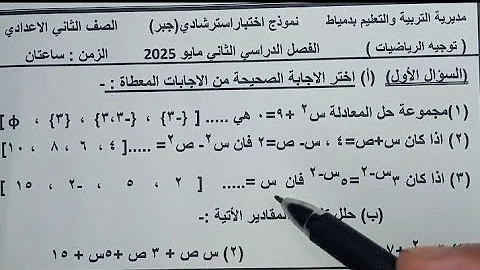 مديرية التربية والتعليم بدمياط نموذج اختبار استرشادي (جبر) الصف الثاني الاعدادي
( توجيه الرياضيات ) الفصل الدراسي الثاني مايو 2025 الزمن : ساعتان
(السؤال الأول) (أ) اختر الاجابة الصحيحة من الاجابات المعطاة : -
(١) مجموعة حل المعادلة س٢ + ٩ = ٠ هي ..... [ {-٣} ، {-٣،٣} ، {٣} ، ϕ ]
(٢) اذا كان س+ص=٤ ، س- ص=٢ فان س٢- ص٢= .....[ ٤ ، ٦ ، ٨ ، ١٠ ]
(٣) اذا كان ٣س-٢=٥س-٢ فان س =..... [ ٢ ، ٥ ، -٢ ، ١٥ ]
(ب) حلل المقادير الأتية :-
(٢) س ص + ٣ ص + ٥س + ١٥